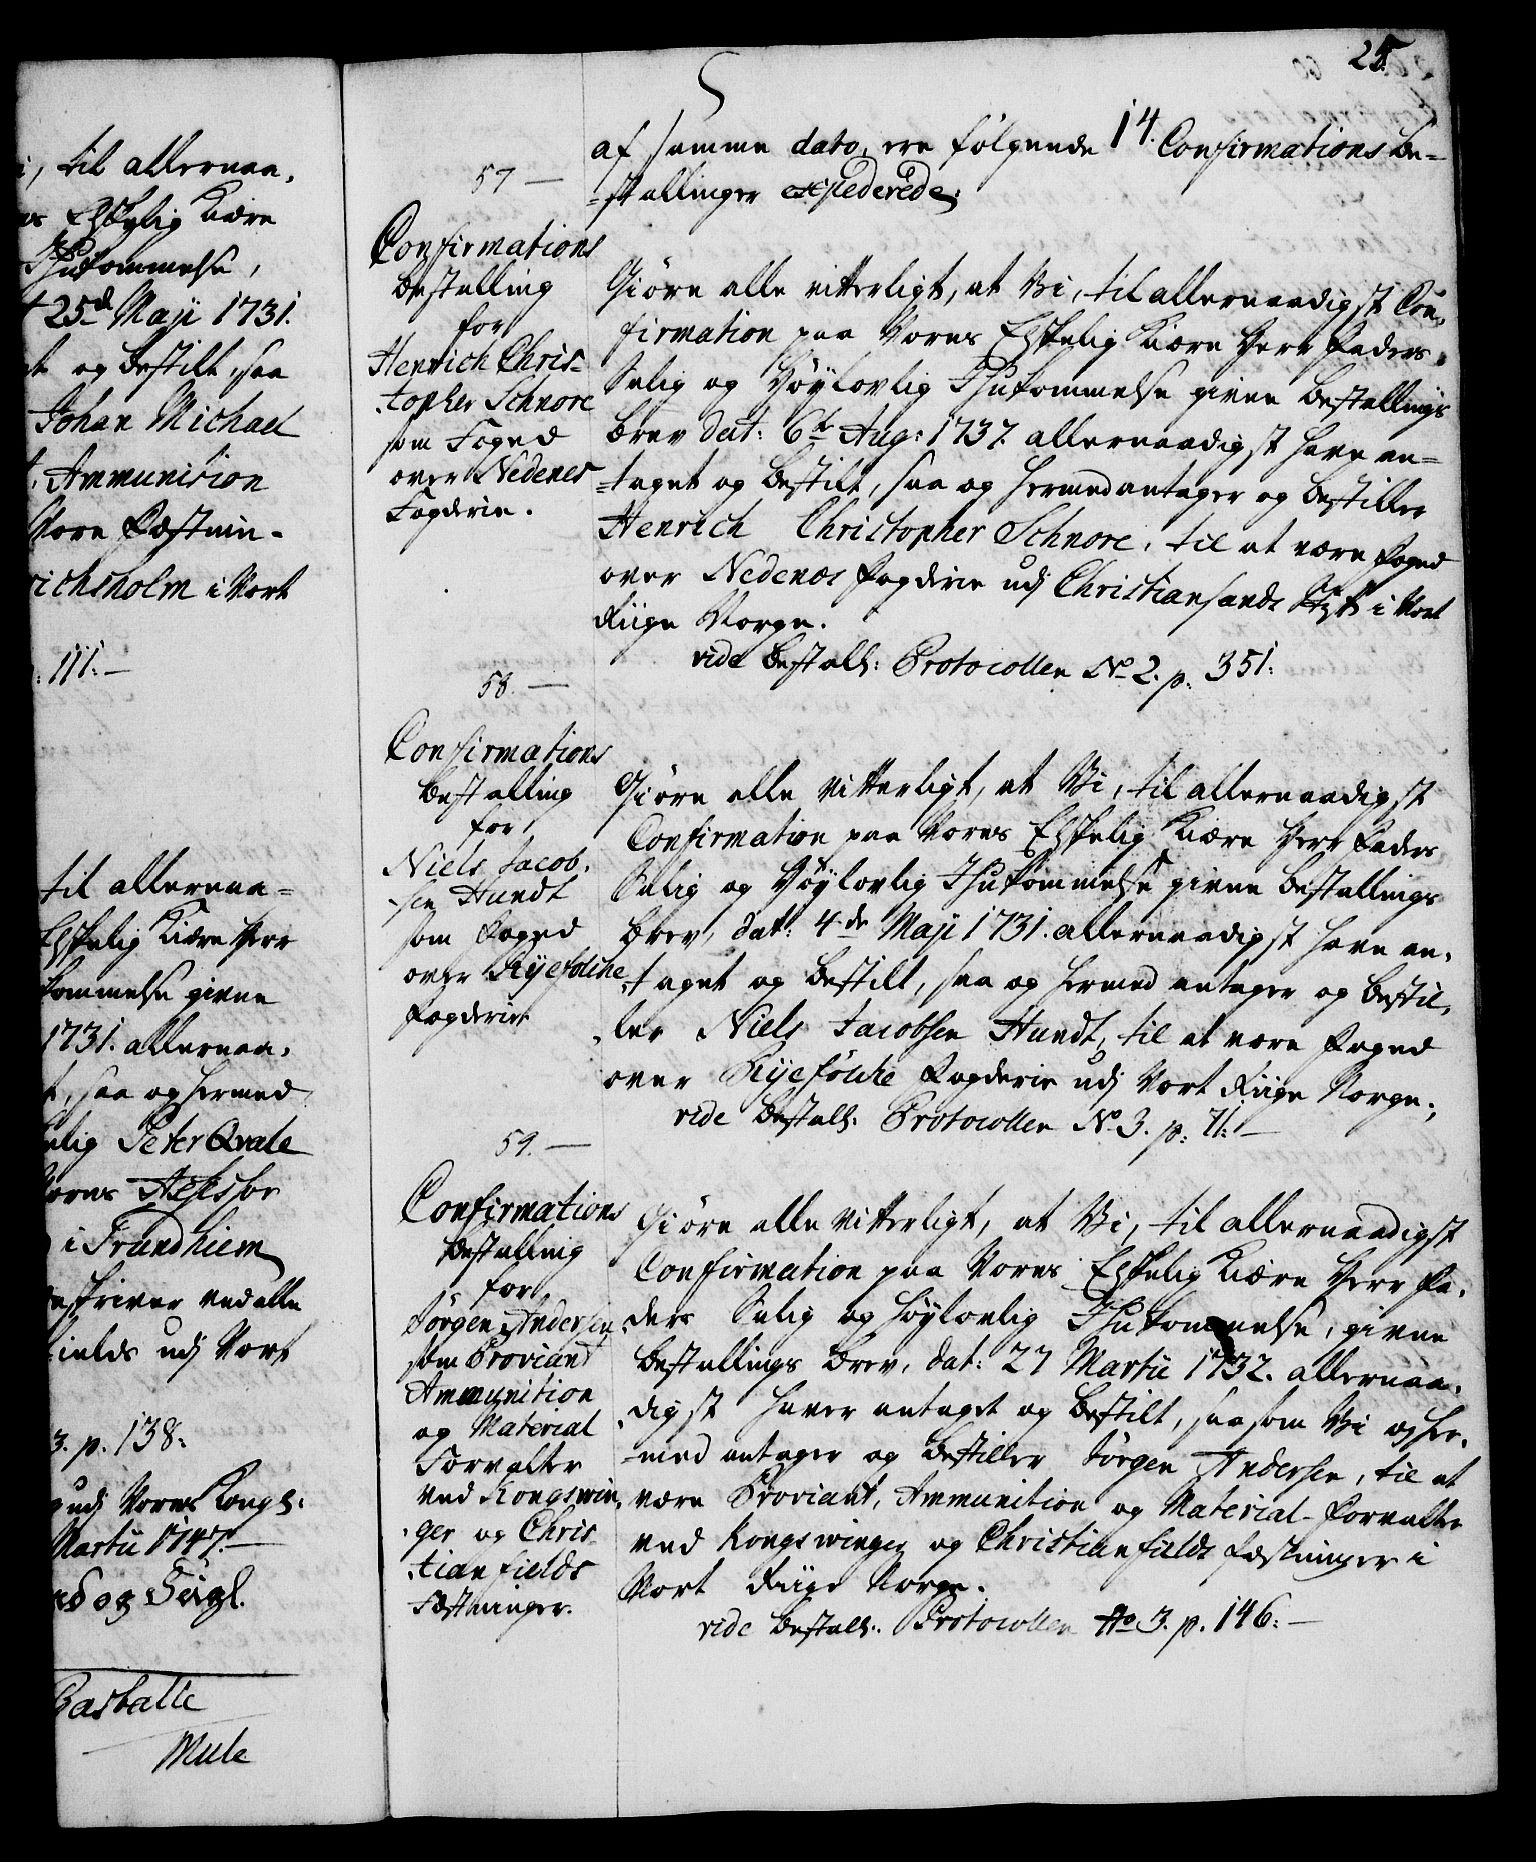 i, til allernaa,
Elskelig Kiære
Ihukommelse,
25d Maji 1731.
og bestilt, saa
Johan Michael
Ammunition
Vore Fæstnin-
richsholm i Vort
: 111:—
til allernaa=
Elskelig Kiære Herr
kommelse givne
1731. allernaa,
t, saa og hermed
Peter Qvale
Vores Assessor
i Trundhiem
skriver ved alle
fields udj Vort
3. p. 138:
udj Vores Kongl:
Martii 1747.—
og Seigl.
Basballe
Mule
25.
af samme dato, ere følgende 14. Confirmations Be=
=stallinger expederede;
57—
Confirmations
Bestalling
for
Henrich Chris=
topher Schnore
som Foged
over Nedenes
Fogderie.
Giøre alle vitterligt, at Vi, til allernaadigst Con,
firmation paa Vores Elskelig Kiære Herr Faders,
Salig og Høylovlig Ihukommelse givne Bestallings
Brev dat: 6te Aug: 1737. allernaadigst have an=
=taget og bestilt, saa og hermed antager og bestiller
Henrich Christopher Schnore, til at være Foged
over Nedenæs Fogderie udj Christiansands Stift i Vort
Riige Norge.
vide Bestall: Protocollen No 2. p. 351:
58.—
Confirmations
Bestalling
for
Niels Jacob,
sen Hundt
som Foged
over Ryefölche
Fogderie
Giøre alle vitterligt, at Vi, til allernaadigst
Confirmation paa Vores Elskelig Kiære Herr Faders
Salig og Høylovlig Ihukommelse givne Bestallings
Brev, dat: 4de Maji 1731. allernaadigst have an,
taget og bestilt, saa og hermed antager og bestil,
ler Niels Jacobsen Hundt, til at være Foged
over Ryefölche Fogderie udj Vort Riige Norge.,
vide Bestall: Protocollen No. 3. p: 71:—
59.—
Confirmations
Bestalling
for
Jörgen Andersen
som Proviant
Ammunition
og Material
Forvalter
ved Kongswin,
ger og Chris=
tianfields
Fæstninger.
Giøre alle vitterligt, at Vi, til allernaadigst
Confirmation paa Vores Elskelig Kiære Herr Fa,
ders Salig og Høylovlig Ihukommelse, givne
Bestallings Brev, dat: 27 Martii 1732. allernaa,
digst haver antaget og bestilt, saasom Vi og her,
=med antager og bestiller Jörgen Andersen, til at
være Proviant, Ammunition og Material-Forvalter
ved Kongswinger og Christianfields Fæstninger i
Vort Riige Norge.
vide Bestall: Protocollen No 3. p. 146:—